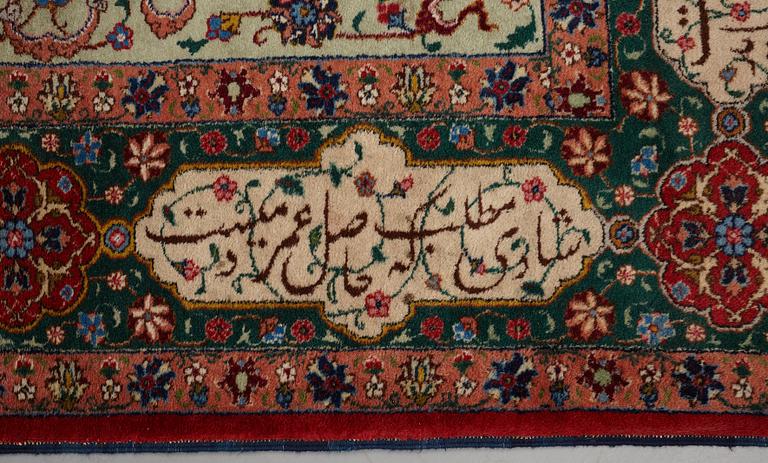 شادی مطلب که حاصل عمر دمیست